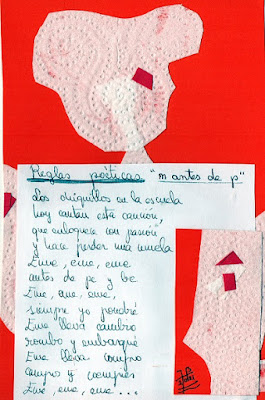 Reglas poéticas "m antes de p"
Los chiquillos en la escuela
hoy cantan esta canción,
que enloquece con pasión
y hace perder una muela
Eme, eme, eme
antes de pe y be
Eme, eme, eme,
siempre yo pondré
Eme lleva cambio
rombo y embarqué
Eme lleva compro
campo y compás
Eme, eme, eme ...